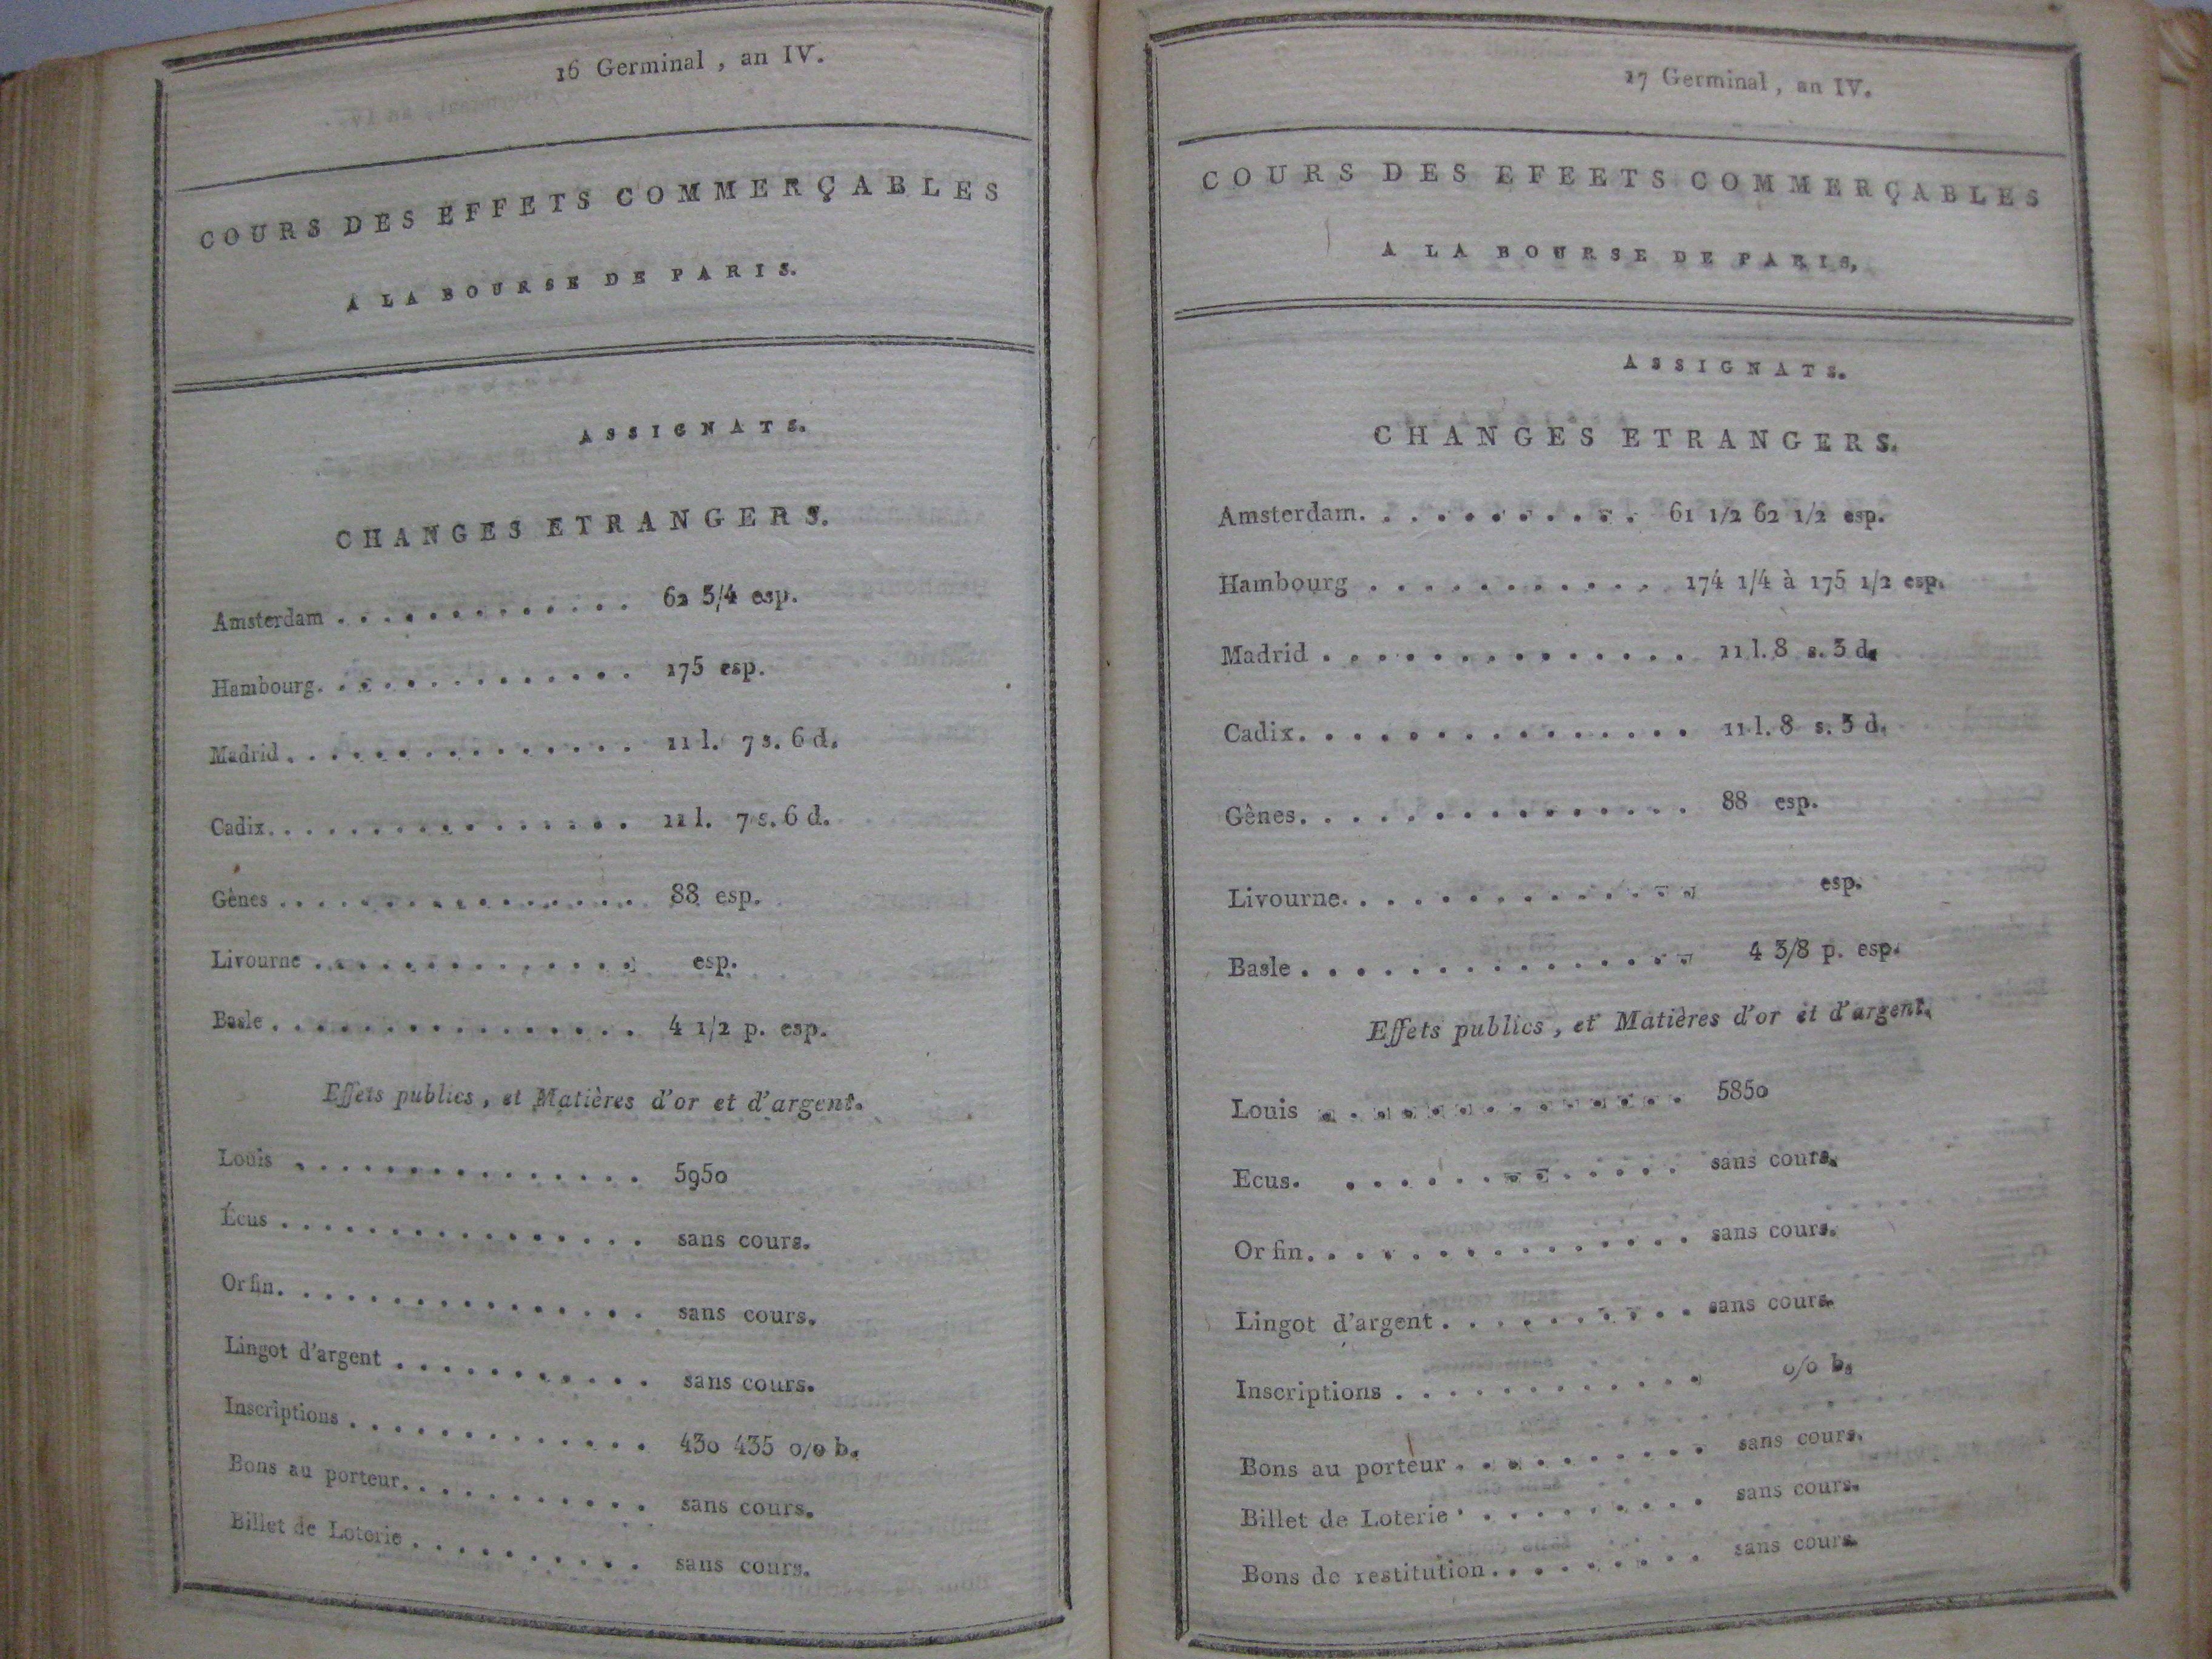 16 Germinal, an IV.
COURS DES EFFETS COMMERÇABLES
A LA BOURSE DE PARIS.
ASSIGNATS.
CHANGES ETRANGERS.
Amsterdam . . . . . . . . . . . . . 62 3/4 esp.
Hambourg. . . . . . . . . . . . . 175 esp.
Madrid . . . . . . . . . . . . . . . 11 l. 7 s. 6 d.
Cadix. . . . . . . . . . . . . . . . 11 l. 7 s. 6 d.
Gènes . . . . . . . . . . . . . . . . 88 esp.
Livourne . . . . . . . . . . . . . . esp.
Basle . . . . . . . . . . . . . . . . 4 1/2 p. esp.
Effets publics, et Matières d'or et d'argent.
Louis . . . . . . . . . . . . . . . 5950
Écus . . . . . . . . . . . . . . . . sans cours.
Or fin. . . . . . . . . . . . . . . . sans cours.
Lingot d'argent . . . . . . . . . . . sans cours.
Inscriptions . . . . . . . . . . . . . 430 435 0/0 b.
Bons au porteur. . . . . . . . . . . sans cours.
Billet de Loterie . . . . . . . . . . sans cours.
17 Germinal, an IV.
COURS DES EFEETS COMMERÇABLES
A LA BOURSE DE PARIS,
ASSIGNATS.
CHANGES ETRANGERS.
Amsterdam. . . . . . . . . . . 61 1/2 62 1/2 esp.
Hambourg . . . . . . . . . . . 174 1/4 à 175 1/2 esp.
Madrid . . . . . . . . . . . . . . 11 l. 8 s. 3 d.
Cadix. . . . . . . . . . . . . . . 11 l. 8 s. 3 d.
Gênes. . . . . . . . . . . . . . . 88 esp.
Livourne. . . . . . . . . . . . . . esp.
Basle . . . . . . . . . . . . . . . 4 3/8 p. esp.
Effets publics, et Matières d'or et d'argent.
Louis . . . . . . . . . . . . . . 5850
Ecus. . . . . . . . . . . . . . sans cours.
Or fin. . . . . . . . . . . . . . . sans cours.
Lingot d'argent . . . . . . . . . . sans cours.
Inscriptions . . . . . . . . . . . . 0/0 b.
Bons au porteur . . . . . . . . . . sans cours.
Billet de Loterie . . . . . . . . . . sans cours.
Bons de restitution. . . . . . . . . sans cours.